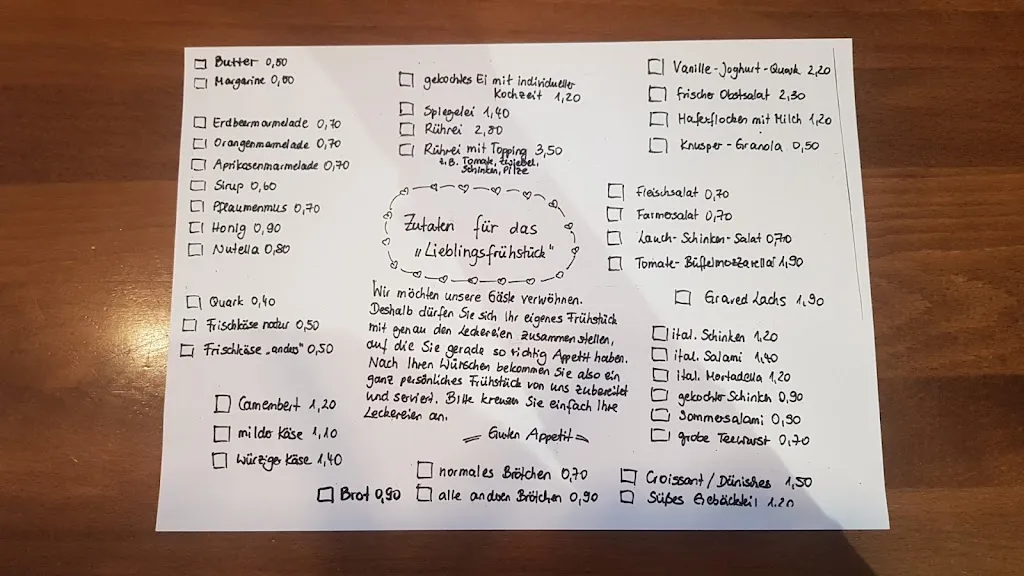 Butter 0,50
Margarine 0,50
Erdbeermarmelade 0,70
Orangenmarmelade 0,70
Aprikosenmarmelade 0,70
Sirup 0,60
Pflaumenmus 0,70
Honig 0,90
Nutella 0,80
Quark 0,40
Frischkäse natur 0,50
Frischkäse „anders" 0,50
Camembert 1,20
milder Käse 1,10
Würziger Käse 1,40
Brot 0,90
gekochtes Ei mit individueller
Kochzeit 1,20
Spiegelei 1,40
Rührei 2,80
Rührei mit Topping 3,50
z.B. Tomate, Zwiebel,
Schinken, Pilze
Zutaten für das
„Lieblingsfrühstück"
Wir möchten unsere Gäste verwöhnen.
Deshalb dürfen Sie sich Ihr eigenes Frühstück
mit genau den Leckereien zusammenstellen,
auf die Sie gerade so richtig Appetit haben.
Nach Ihren Wünschen bekommen Sie also ein
ganz persönliches Frühstück von uns zubereitet
und serviert. Bitte kreuzen Sie einfach Ihre
Leckereien an.
Guten Appetit
normales Brötchen 0,70
alle anderen Brötchen 0,90
Vanille-Joghurt-Quark 2,20
frischer Obstsalat 2,30
Haferflocken mit Milch 1,20
Knusper-Granola 0,50
Fleischsalat 0,70
Farmersalat 0,70
Lauch-Schinken-Salat 0,70
Tomate-Büffelmozzarella 1,90
Graved Lachs 1,90
ital. Schinken 1,20
ital. Salami 1,40
ital. Mortadella 1,20
gekochter Schinken 0,90
Sommersalami 0,90
grobe Teewurst 0,70
Croissant / Dänisches 1,50
Süßes Gebäckteil 1,20